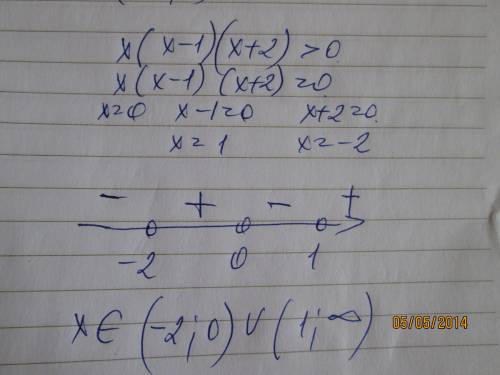 x(x-1)(x+2)>0
x(x-1)(x+2)=0
x=0 x-1=0 x+2=0
x=1 x=-2
- + - +
-2 0 1
x∈(-2;0)∪(1;∞)
05/05/2014